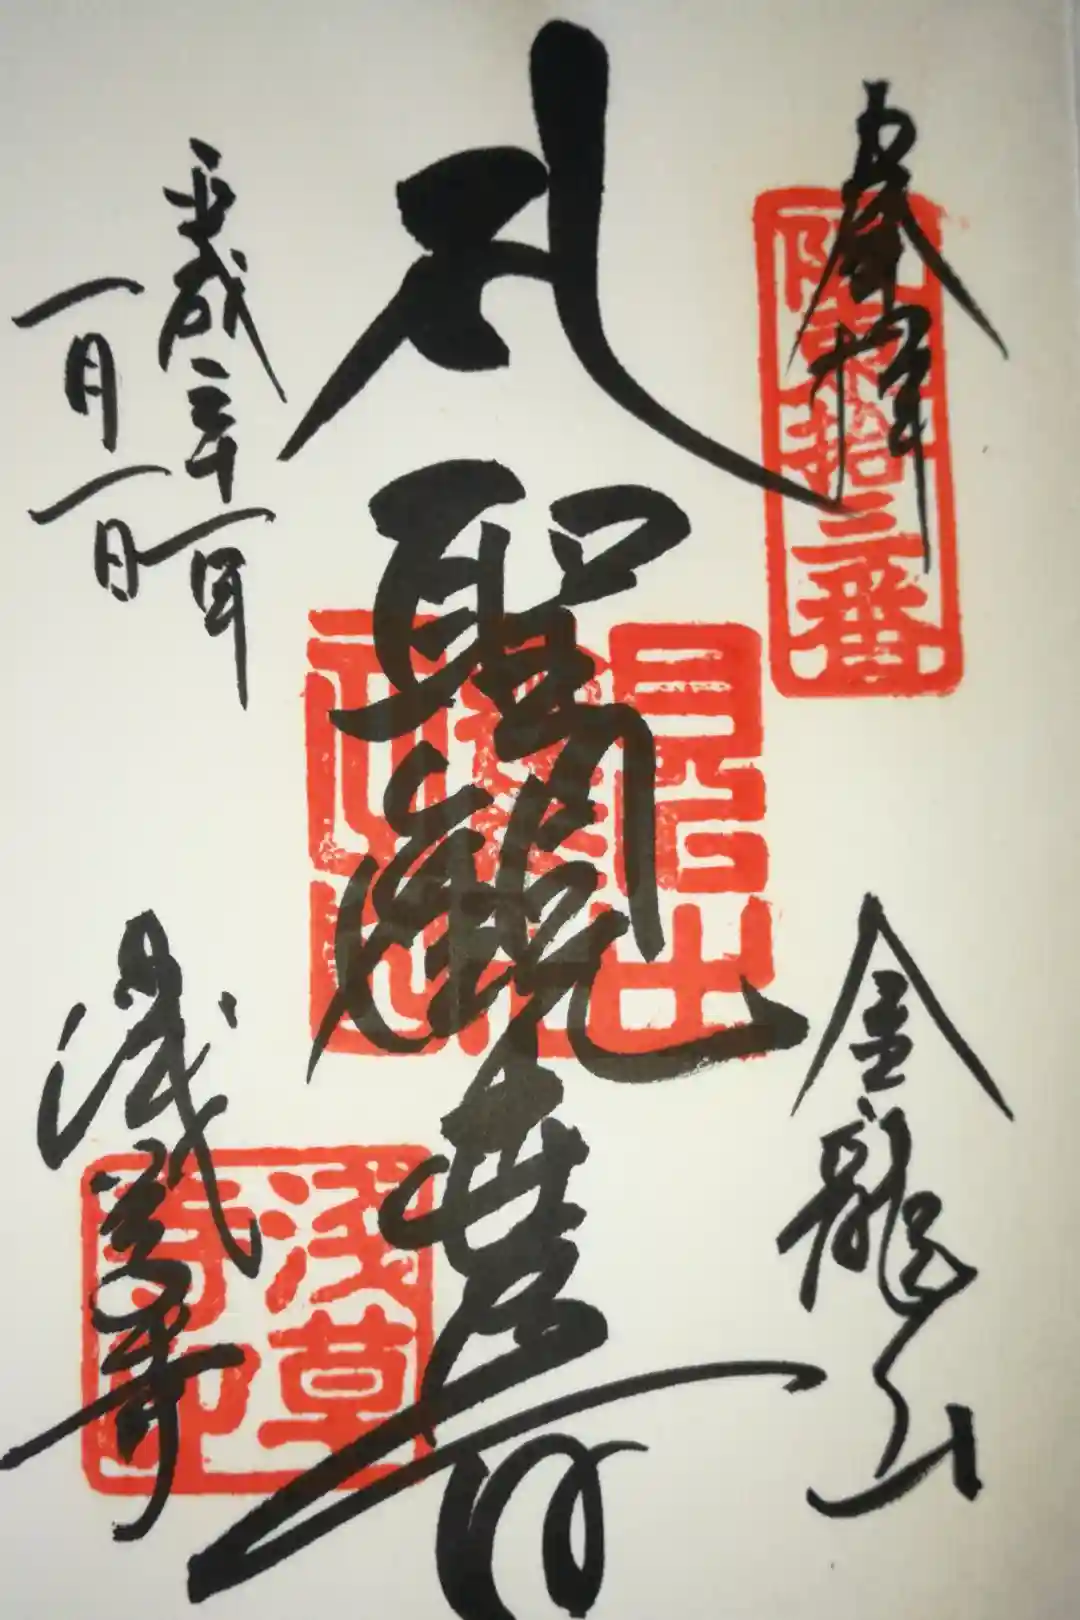 奉拝
阪東拾三番
金龍山
聖観世音
平成三十一年
一月一日
浅草寺
浅草寺印